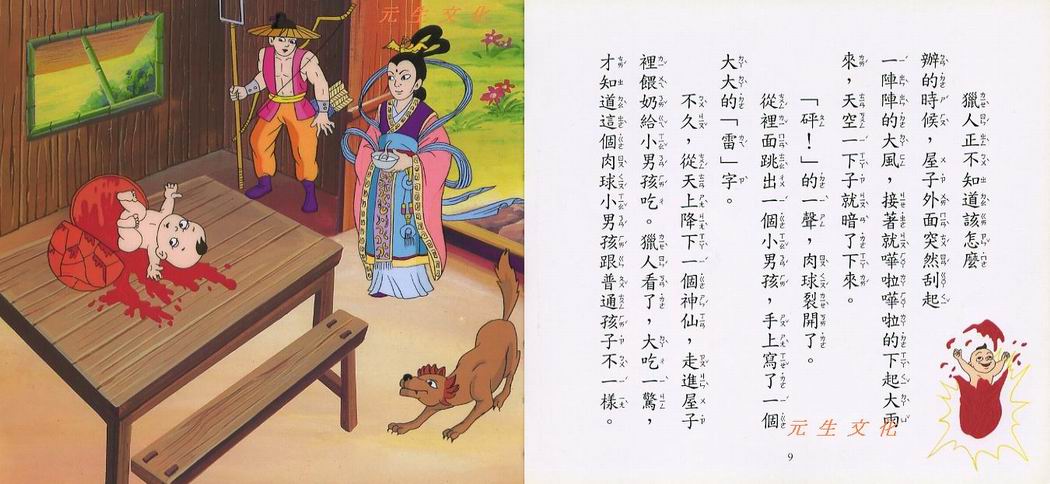 元生文化
獵人正不知道該怎麼
辦的時候，屋子外面突然刮起
一陣陣的大風，接著就嘩啦嘩啦的下起大雨
來，天空一下子就暗了下來。
「砰！」的一聲，肉球裂開了。
從裡面跳出一個小男孩，手上寫了一個
大大的「雷」字。
不久，從天上降下一個神仙，走進屋子
裡餵奶給小男孩吃。獵人看了，大吃一驚，
才知道這個肉球小男孩跟普通孩子不一樣。
元生文化
9